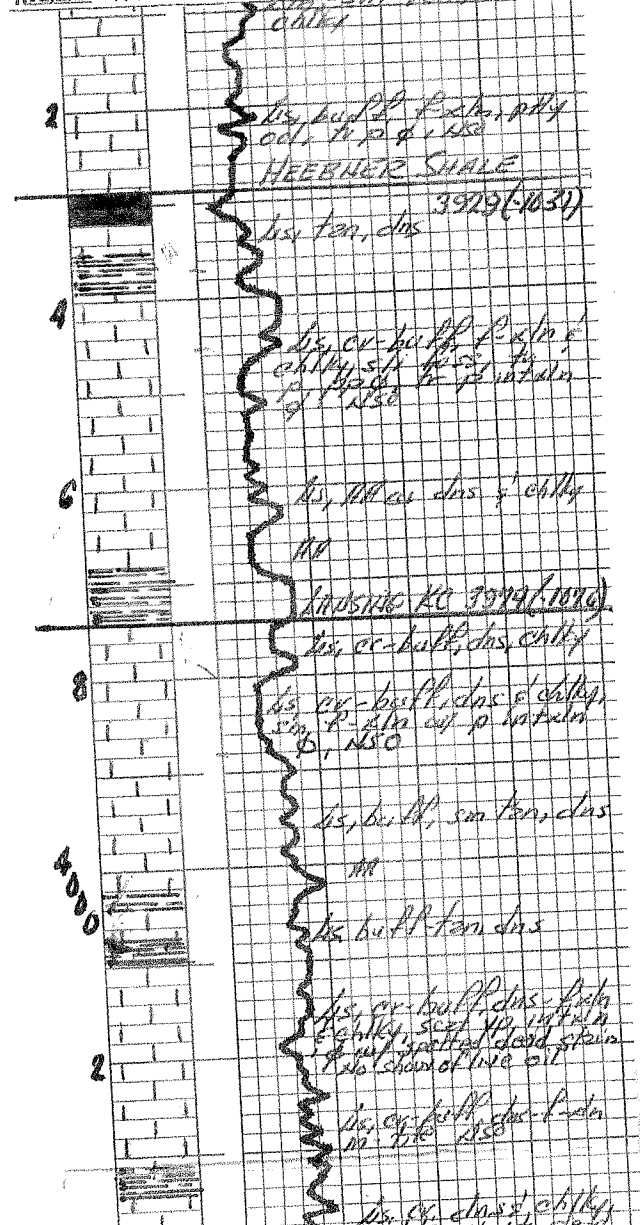 chlky
2
Ls, buff, f-xln, ptly
ool, tr p φ, NSO
HEEBNER SHALE
3929(-1031)
Ls, tan, dns
4
Ls, cr-buff, f-xln &
chlky, sli foss, tr
p ppφ, tr p intxln
φ NSO
6
Ls, AA w/ dns & chlky
AA
LANSING KC 3974(-1076)
Ls, cr-buff, dns, chlky
8
Ls, cr-buff, dns & chlky,
sm f-xln w/ p intxln
φ, NSO
Ls, buff, sm tan, dns
AA
4000
Ls buff-tan, dns
Ls, cr-buff, dns-fxln
& chlky, scat intxln
φ w/ spotted dead stain
No show of live oil
2
Ls, cr-buff, dns-f-xln
NSO
Ls, cr, dns &, chlky,